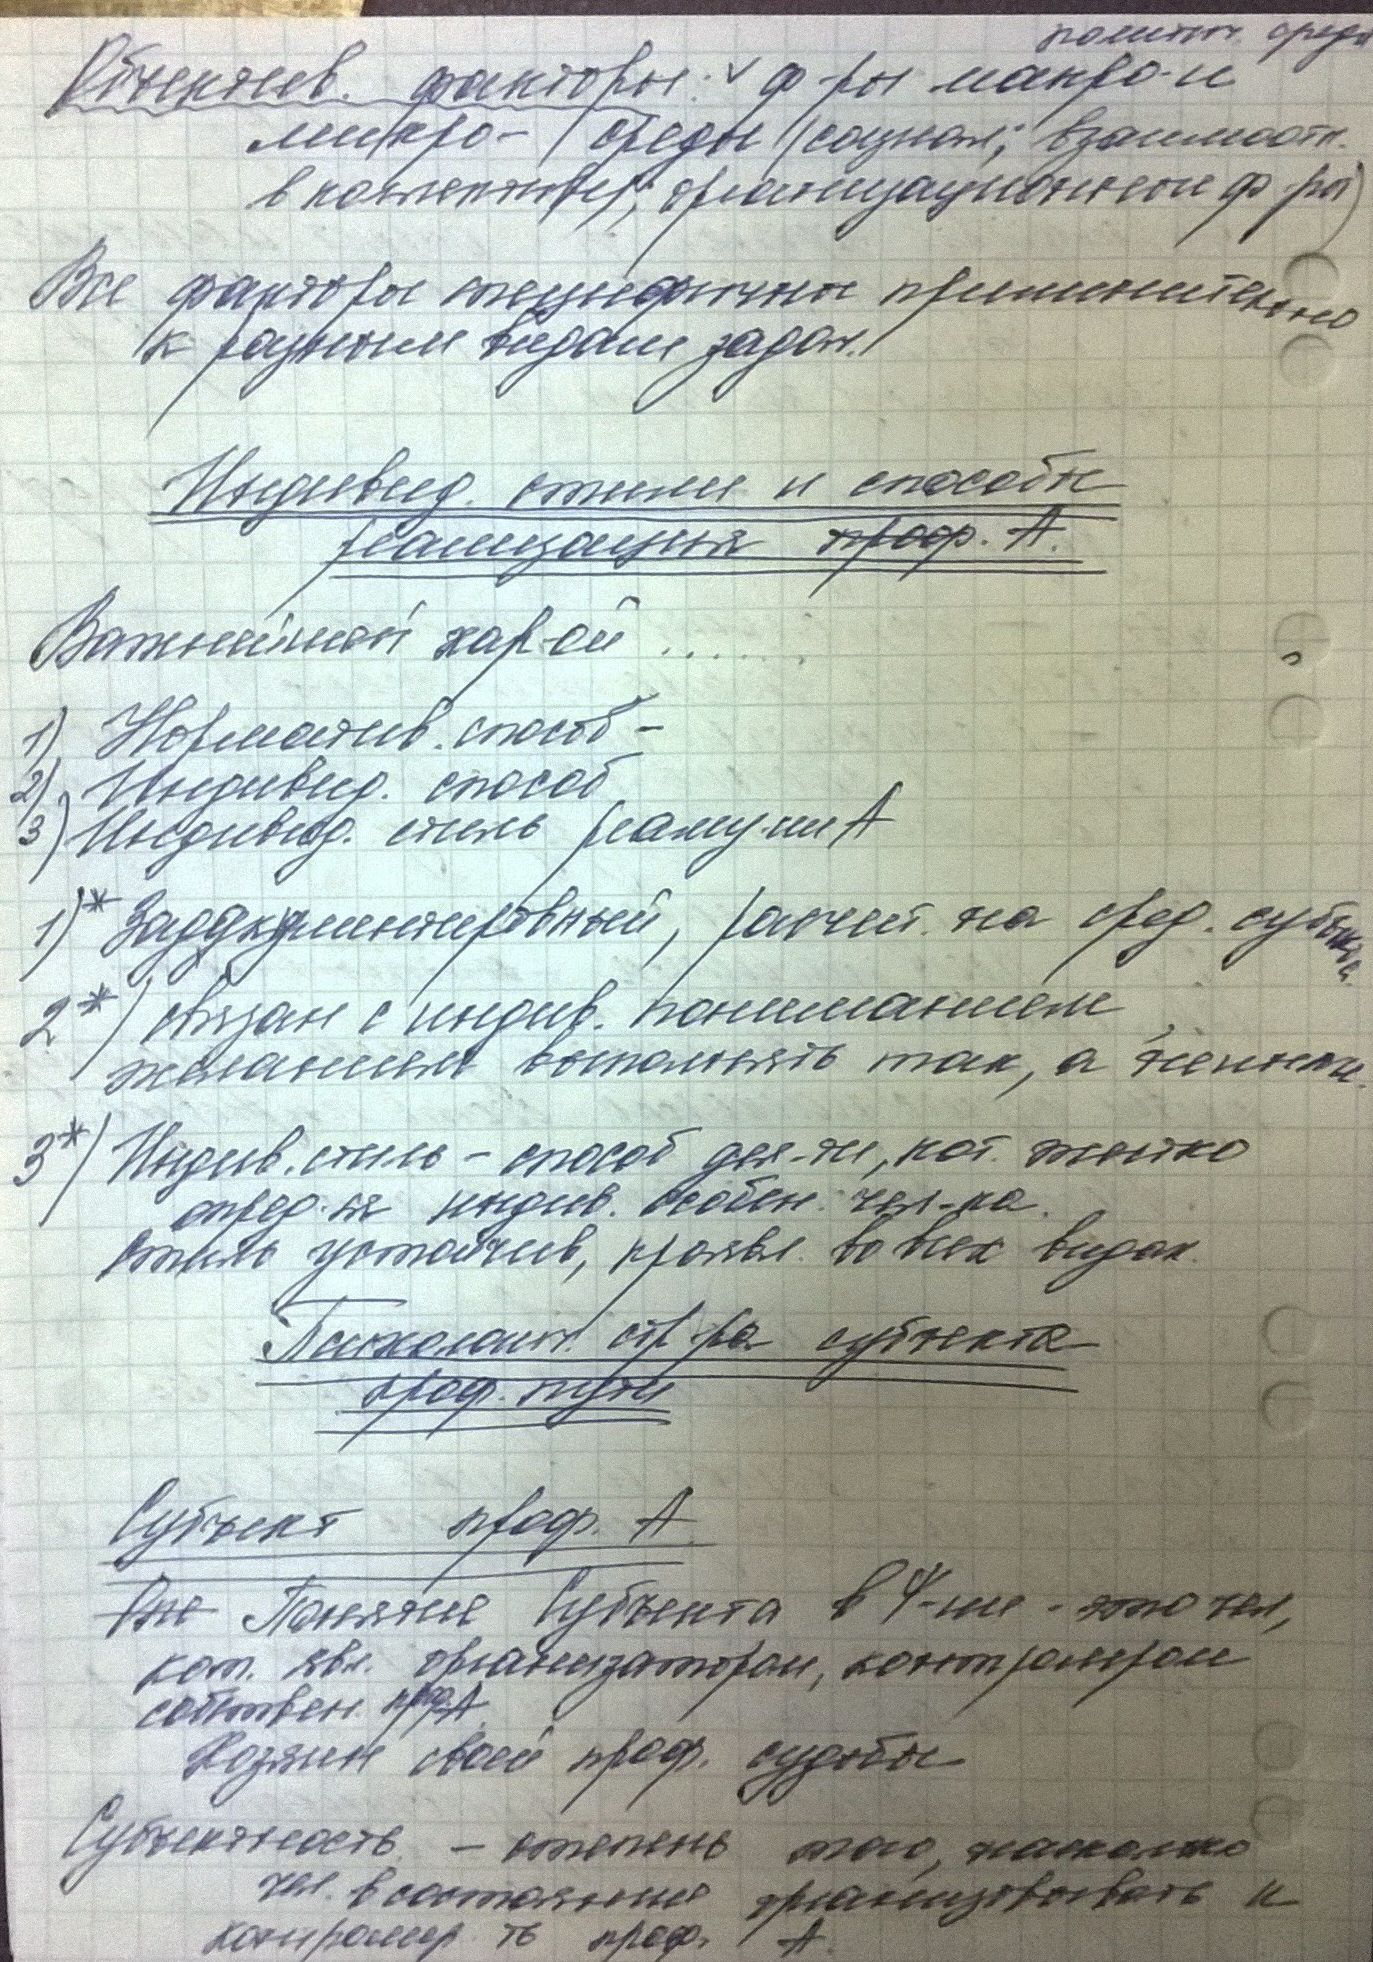 политич. среда
Объектив. факторы: ф-ры макро- и
микро- среды (социал; взаимоотн.
в коллективе; организационные ф-ры)
Все факторы специфичны применительно
к разным видам задач.
Индивид. стили и способы
реализации проф. А.
Важнейшей хар-ой ......
1) Норматив. способ -
2) Индивид. способ
3) Индивид. стиль реализ-ии А
1)* Задокументированный, расчит. на сред. субъекта.
2*) связан с индив. пониманием,
желанием выполнять так, а не иначе.
3*) Индив. стиль - способ дея-ти, кот. жестко
опред-ся индив. особен. чел-ка.
Стиль устойчив, проявл. во всех видах.
Психологич. стр-ра субъекта
проф. пути
Субъект проф. А.
Понятие Субъекта в Ψ-ии - это чел,
кот. явл. организатором, контролером
собствен. проф. А.
Хозяин своей проф. судьбы
Субъектность - степень того, насколько
чел. в состоянии организовывать и
контролир-ть проф. А.